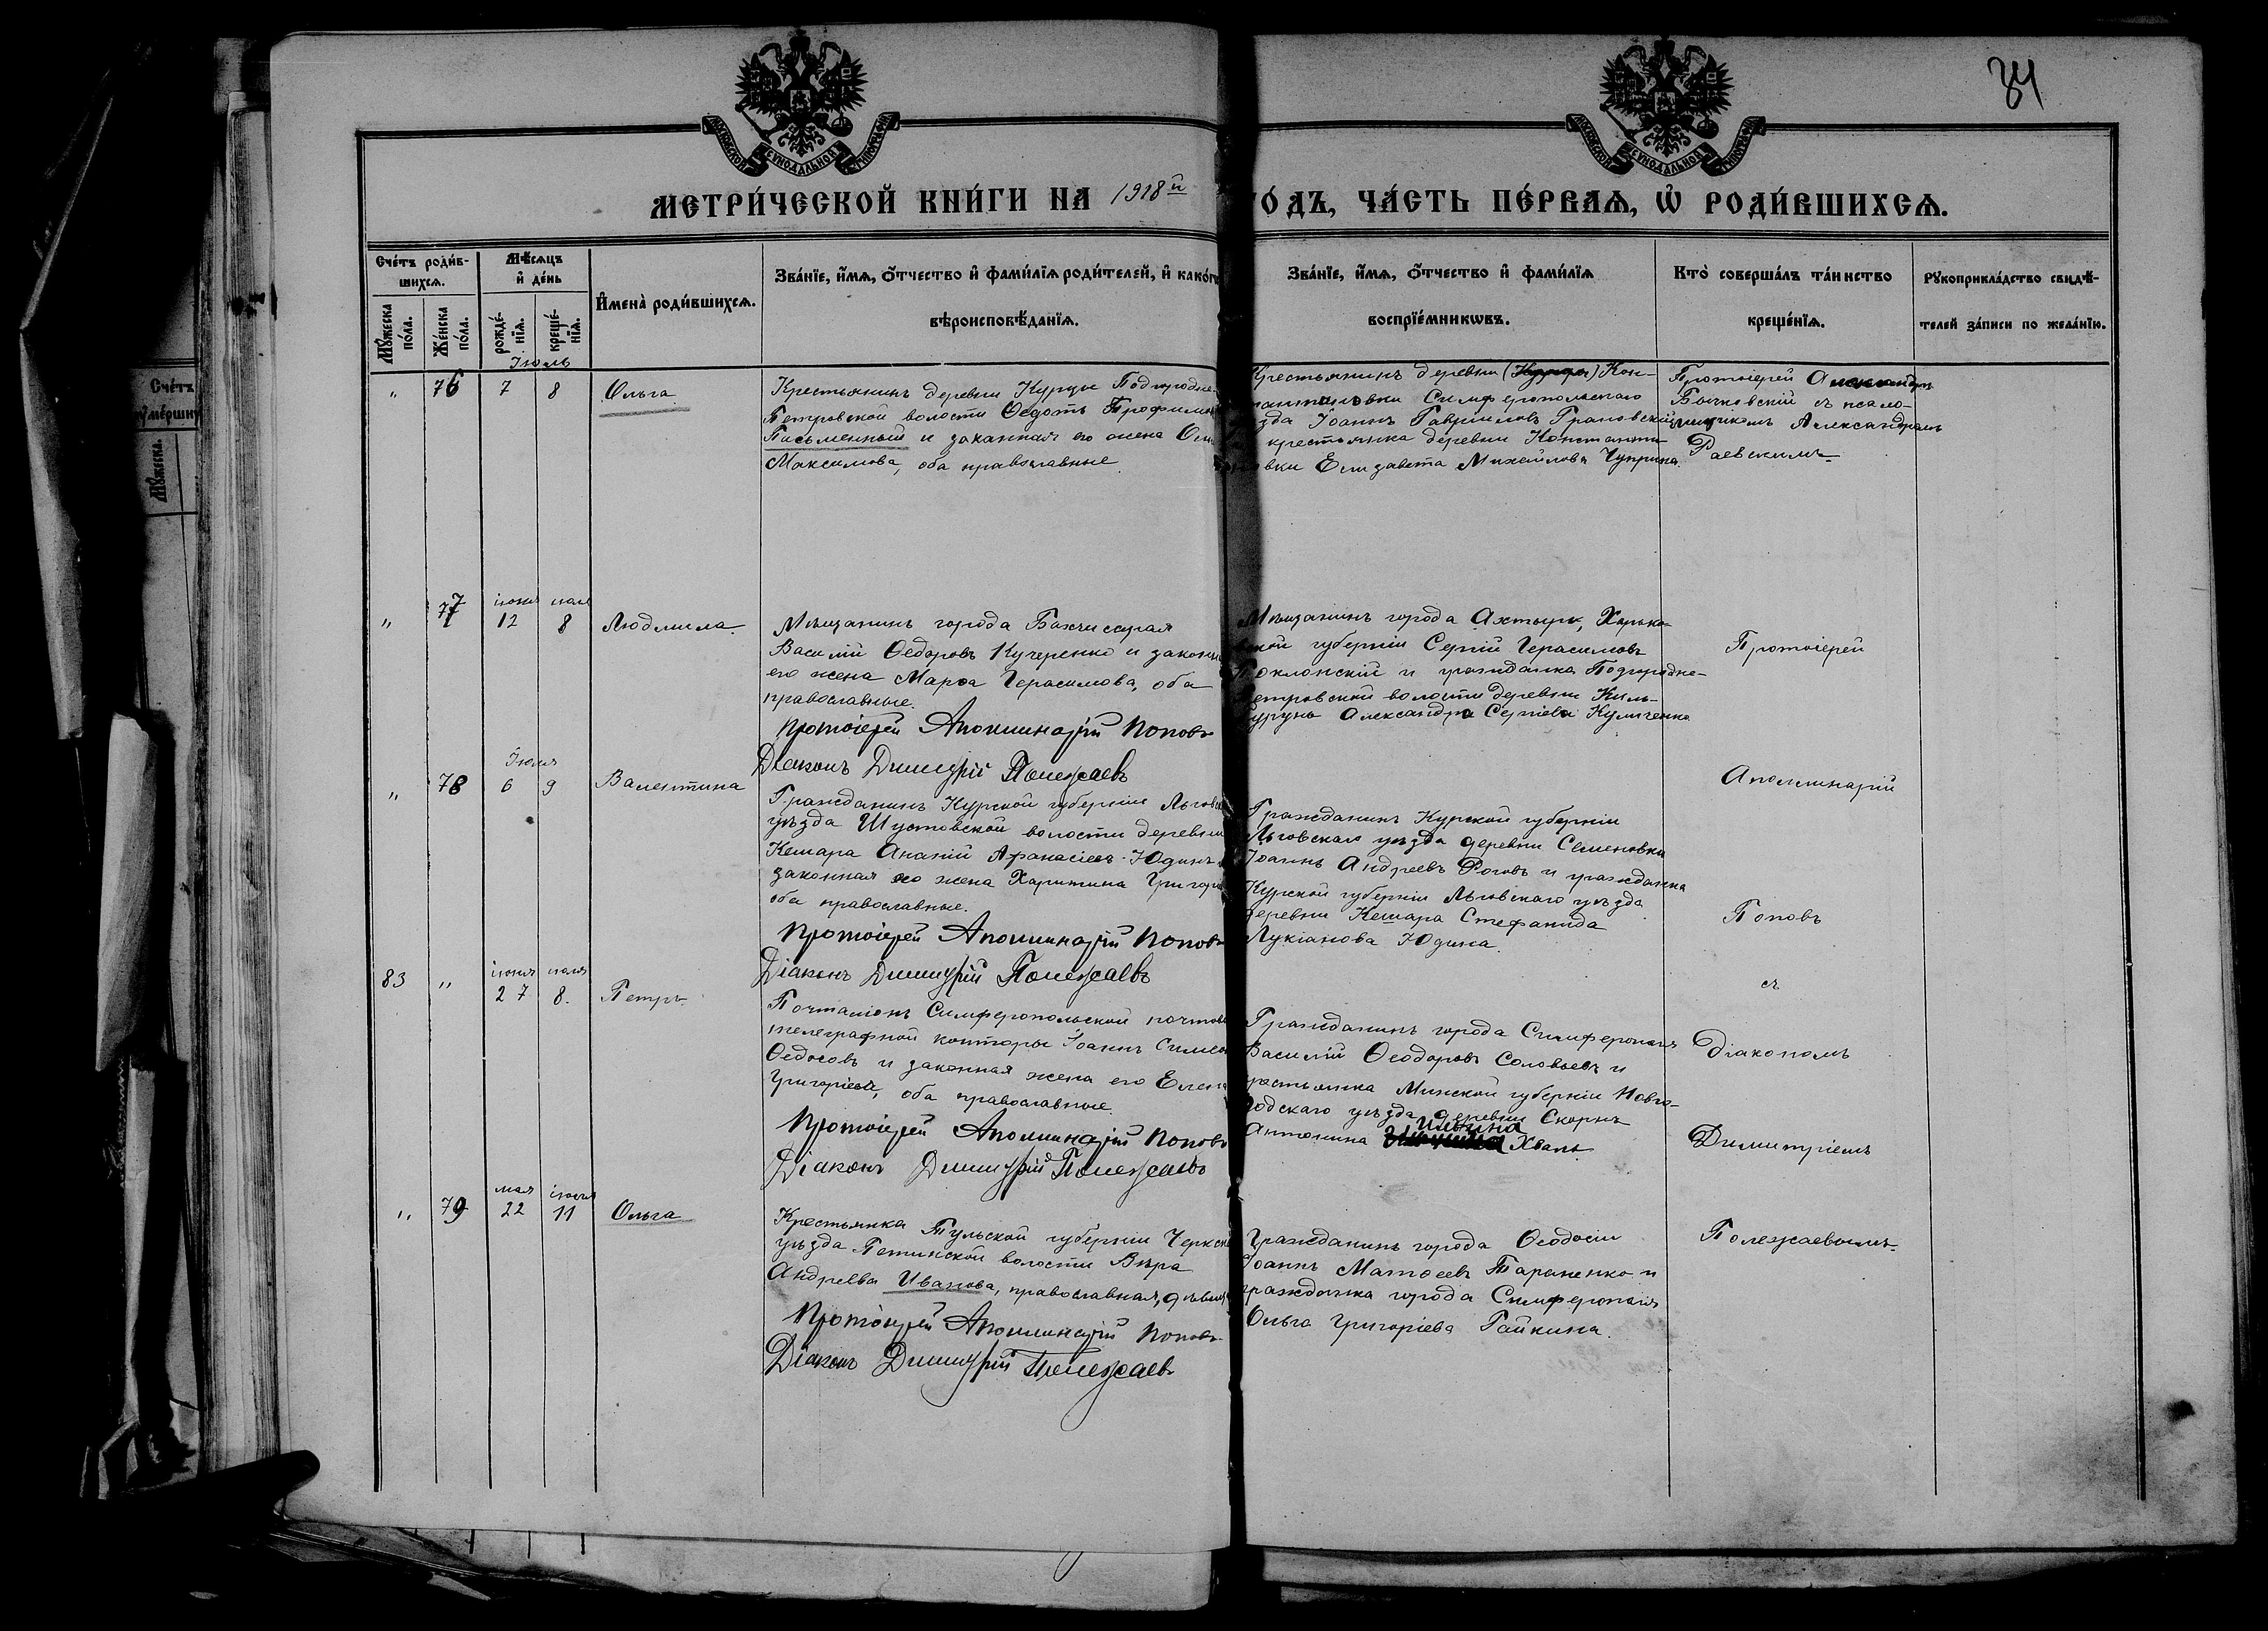 84
МОСКОВСКОЙ СѴНОДАЛЬНОЙ ТИПОГРАФІИ
МОСКОВСКОЙ СѴНОДАЛЬНОЙ ТИПОГРАФІИ
МЕТРИ́ЧЕСКОЙ КНИ́ГИ НА 1918й
ГО́ДЪ, ЧА́СТЬ ПЕ́РВАѦ, Ѡ҆ РОДИ́ВШИХСѦ.
Сче́тъ роди́в-
шихсѧ.
Мꙋ́жеска по́ла.
Же́нска по́ла.
Мѣ́сѧцъ
и҆ де́нь
рожде́-нїѧ.
креще́-нїѧ.
И҆мена̀ роди́вшихсѧ.
Зва́нїе, и҆́мѧ, ѻ҆́тчество и҆ фами́лїѧ роди́телей, и҆ како́гѡ
вѣроисповѣ́данїѧ.
Зва́нїе, и҆́мѧ, ѻ҆́тчество и҆ фами́лїѧ
воспрїе́мникѡвъ.
Кто̀ соверша́лъ та́инство
креще́нїѧ.
Рꙋкоприкла́дство свидѣ́-
телей за́писи по жела́нїю.
Іюль
" 76 7 8 Ольга
Крестьянинъ деревни Курцы Подгородне-
Петровской волости Ѳедотъ Трофимовъ
Письменный и законная его жена
Максимова, оба православные.
Крестьянинъ деревни (Курцы) Кон-
стантиновки Симферопольскаго
уѣзда Іоаннъ Гавриловъ Грановскій
и крестьянка деревни Константи-
новки Елизавета Михайлова Чуприна.
Протоіерей Александръ
Бычковскій съ псало-
мщикомъ Александромъ
Раевскимъ
іюня іюля
" 77 12 8 Людмила.
Мѣщанинъ города Бахчисарая
Василій Ѳедоровъ Кучеренко и законная
его жена Марѳа Герасимова, оба
православные.
Протоіерей Аполлинарій Поповъ
Діаконъ Димитрій Полежаевъ
Мѣщанинъ города Ахтырк, Харько-
вской губерніи Сергій Герасимовъ
Поклонскій и гражданка Подгородне-
Петровской волости деревни Киль-
бурунъ Александра Сергіева Куличенко
Протоіерей
Іюля
" 78 6 9 Валентина
Гражданинъ Курской губерніи Льговск
уѣзда Шустовской волости деревни
Кешара Ананій Аѳанасіевъ Юдинъ и
законная его жена Харитина Григорі
оба православные.
Протоіерей Аполлинарій Поповъ
Діаконъ Димитрій Полежаевъ
Гражданинъ Курской губерніи
Льговскаго уѣзда деревни Семеновки
Іоаннъ Андреевъ Роговъ и гражданка
Курской губерніи Льговскаго уѣзда
деревни Кешара Стефанида
Лукіанова Юдина.
Аполлинарій
Поповъ
іюня іюля
83 " 27 8. Петръ
Почталіонъ Симферопольской почтово
телеграфной конторы Іоаннъ Симео
Ѳедосовъ и законная жена его Елена
Григоріева, оба православные.
Протоіерей Аполлинарій Поповъ
Діаконъ Димитрій Полежаевъ
Гражданинъ города Симферополя
Василій Ѳеодоровъ Соловьевъ и
крестьянка Минской губерніи Новог-
родскаго уѣзда деревни Скоринъ
Ильина
Антонина Хваль
съ
Діакономъ
Димитріемъ
мая іюля
" 79 22 11 Ольга
Крестьянка Тульской губерніи Чернск
уѣзда Петинской волости Вѣра
Андреева Иванова, православная, дѣвица
Протоіерей Аполлинарій Поповъ
Діаконъ Димитрій Полежаевъ
Гражданинъ города Ѳеодосіи
Іоаннъ Матѳеевъ Тараненко и
гражданка города Симферополя
Ольга Григоріева Гайкина.
Полежаевымъ.
Сче́тъ
ꙋме́рши
Мꙋ́жеска.